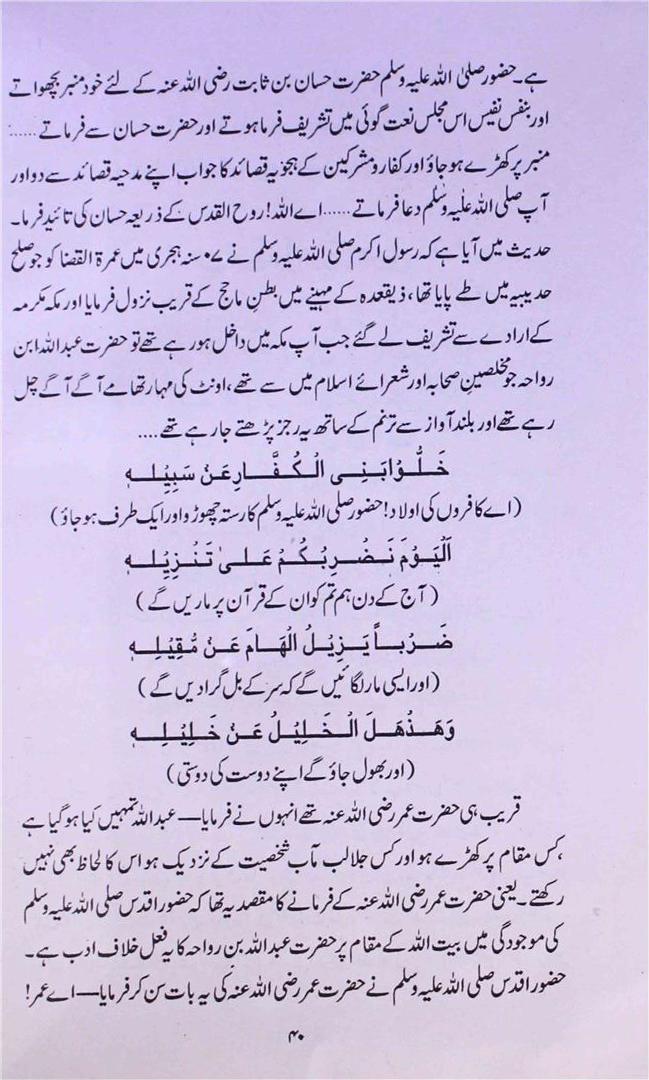 ہے۔ حضور صلی اللہ علیہ وسلم حضرت حسان بن ثابت رضی اللہ عنہ کے لئے خود منبر بچھواتے
اور بنفس نفیس اس مجلس نعت گوئی میں تشریف فرما ہوتے اور حضرت حسان سے فرماتے ......:
منبر پر کھڑے ہو جاؤ اور کفار و مشرکین کے ہجویہ قصائد کا جواب اپنے مدحیہ قصائد سے دو اور
آپ صلی اللہ علیہ وسلم دعا فرماتے ...... اے اللہ! روح القدس کے ذریعہ حسان کی تائید فرما۔
حدیث میں آیا ہے کہ رسول اکرم صلی اللہ علیہ وسلم نے ۰۷ سنہ ہجری میں عمرۃ القضا کو جو صلح
حدیبیہ میں طے پایا تھا، ذیقعدہ کے مہینے میں بطنِ ماجج کے قریب نزول فرمایا اور مکہ مکرمہ
کے ارادے سے تشریف لے گئے جب آپ مکہ میں داخل ہو رہے تھے تو حضرت عبد اللہ ابن
رواحہ جو مخلصینِ صحابہ اور شعرائے اسلام میں سے تھے، اونٹ کی مہار تھامے آگے آگے چل
رہے تھے اور بلند آواز سے ترنم کے ساتھ یہ رجز پڑھتے جا رہے تھے ....
خَلُّوا بَنِی الْکُفَّارِ عَنْ سَبِیْلِہٖ
(اے کافروں کی اولاد! حضور صلی اللہ علیہ وسلم کا رستہ چھوڑو اور ایک طرف ہو جاؤ)
اَلْیَوْمَ نَضْرِبُکُمْ عَلیٰ تَنْزِیْلِہٖ
(آج کے دن ہم تم کو ان کے قرآن پر ماریں گے)
ضَرْباً یَزِیْلُ الْھَامَ عَنْ مُقِیْلِہٖ
(اور ایسی مار لگائیں گے کہ سر کے بل گرا دیں گے)
وَھَذْھَلَ الْخَلِیْلُ عَنْ خَلِیْلِہٖ
(اور بھول جاؤ گے اپنے دوست کی دوستی)
قریب ہی حضرت عمر رضی اللہ عنہ تھے انہوں نے فرمایا — عبد اللہ تمہیں کیا ہو گیا ہے
،کس مقام پر کھڑے ہو اور کس جلالب مآب شخصیت کے نزدیک ہو اس کا لحاظ بھی نہیں
رکھتے۔ یعنی حضرت عمر رضی اللہ عنہ کے فرمانے کا مقصد یہ تھا کہ حضور اقدس صلی اللہ علیہ وسلم
کی موجودگی میں بیت اللہ کے مقام پر حضرت عبد اللہ بن رواحہ کا یہ فعل خلاف ادب ہے۔
حضور اقدس صلی اللہ علیہ وسلم نے حضرت عمر رضی اللہ عنہ کی یہ بات سن کر فرمایا — اے عمر!
۴۰